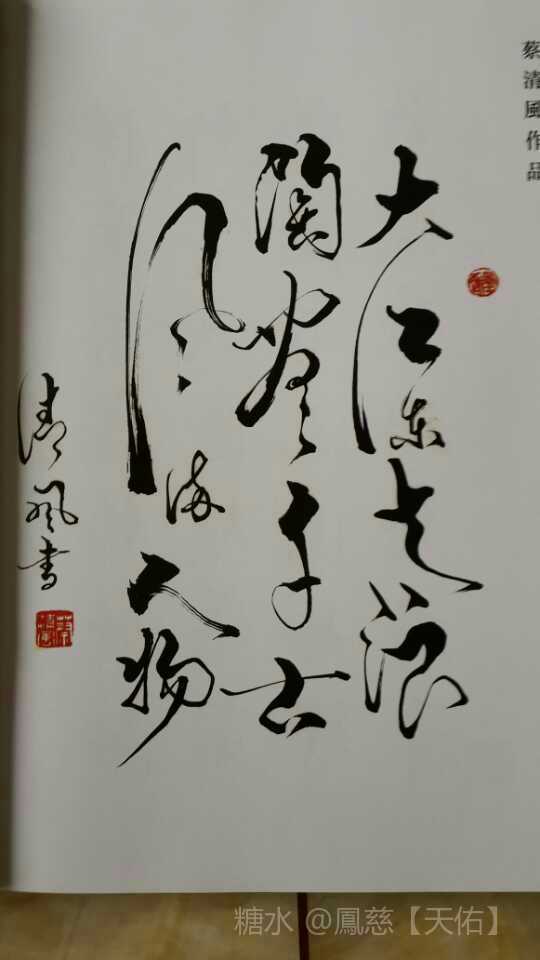 蔡清風作品
大江東去浪
陶盡千古
風流人物
清風書
糖水 @鳳慈【天佑】